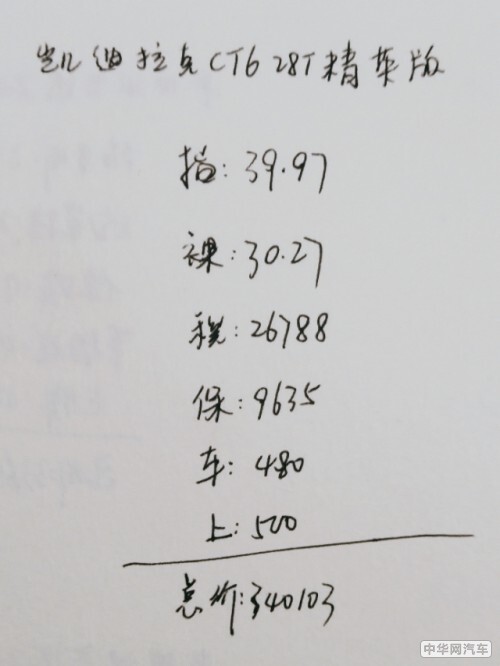 凯迪拉克CT6 28T精英版
指:39.97
裸:30.27
税:26788
保:9635
车:480
上:500
总价:340103
中华网汽车